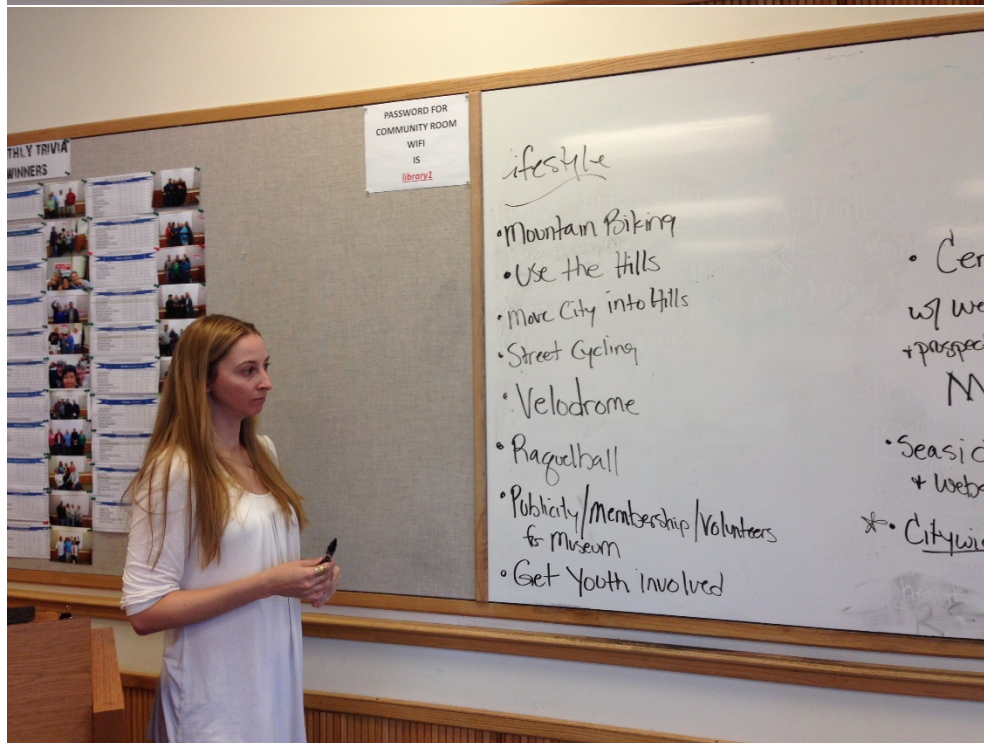 THLY TRIVIA
WINNERS
PASSWORD FOR
COMMUNITY ROOM
WIFI
IS
library1
ifestyle
• Mountain Biking
• Use the Hills
• Move City into Hills
• Street Cycling
• Velodrome
• Raquelball
• Publicity/Membership/Volunteers
for Museum
• Get Youth involved
• Cer
w/ we
+ prospec
M
• Seasid
+ webs
* • Citywi